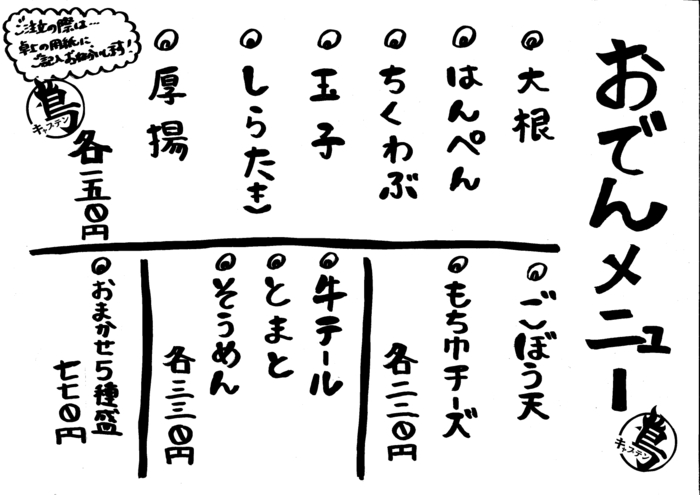 おでんメニュー
鳶
キャステン
大根
はんぺん
ちくわぶ
玉子
しらたき
厚揚
各一五〇円
ごぼう天
もち巾チーズ
各二二〇円
牛テール
とまと
そうめん
各三三〇円
おまかせ5種盛
七七〇円
ご注文の際は…
卓上の用紙に
ご記入お願いします!